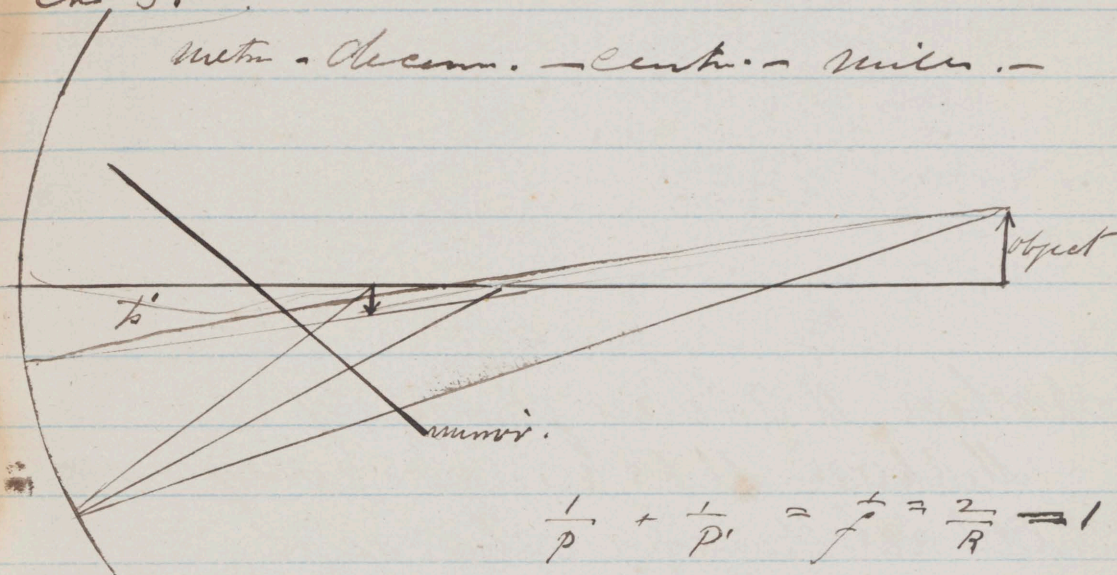 metr - decem. - cent. - miller. -
object
p'
mirror.
1/p + 1/p' = 1/f = 2/R - 1